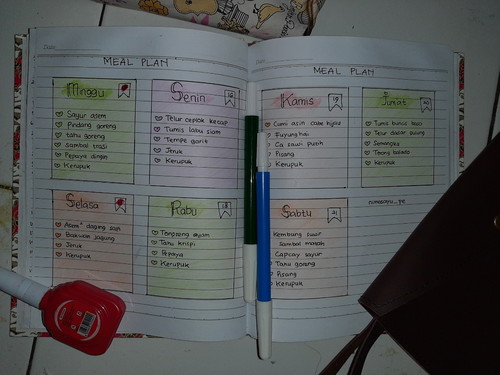 MEAL PLAN
Minggu
Sayur asem
Pindang goreng
tahu goreng
sambal trasi
Pepaya dingin
Kerupuk
Senin
Telur ceplok kecap
Tumis labu siam
Tempe garit
Jeruk
Kerupuk
Selasa
Asem² daging sapi
Bakwan jagung
Jeruk
Kerupuk
Rabu
Tongseng ayam
Tahu krispi
Pepaya
Kerupuk
MEAL PLAN
Kamis
Cumi asin cabe hijau
Fuyunghai
Ca sawi putih
Pisang
Kerupuk
Jumat
Tumis buncis
Telur dadar
Semangka
Kerupuk
Sabtu
Kembung bakar
Sambal matah
Capcay sayur
Tahu goreng
Pisang
Kerupuk